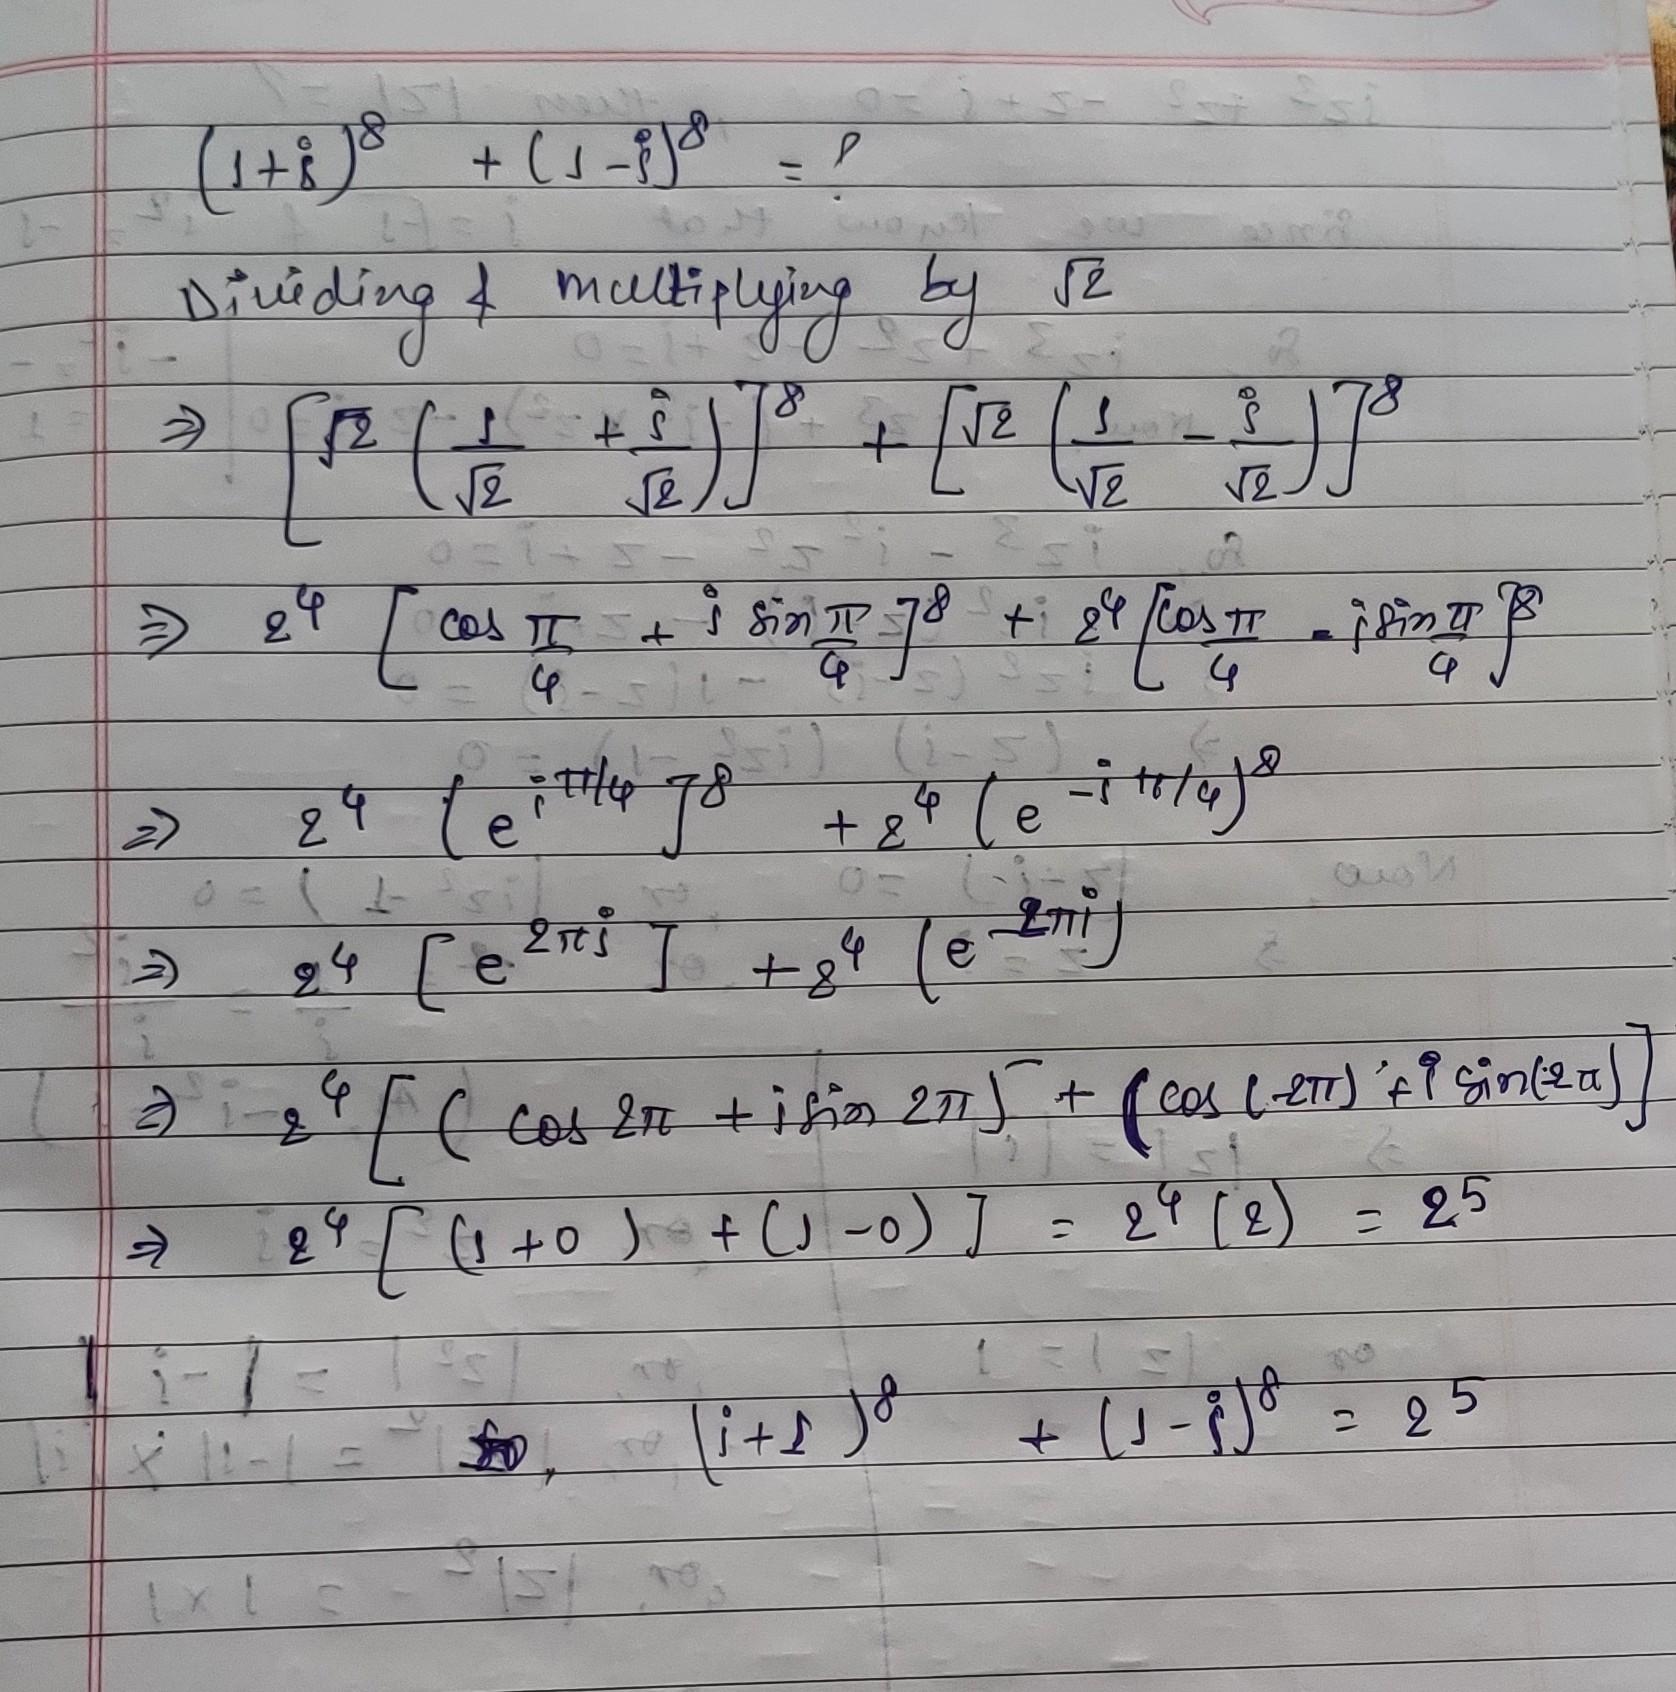 (1+i)^8 + (1-i)^8 = ?
Dividing & multiplying by √2
⇒ [√2 (1/√2 + i/√2)]^8 + [√2 (1/√2 - i/√2)]^8
⇒ 2^4 [cos π/4 + i sin π/4]^8 + 2^4 [cos π/4 - i sin π/4]^8
⇒ 2^4 (e^{iπ/4}]^8 + 2^4 (e^{-iπ/4})^8
⇒ 2^4 [e^{2πi}] + 2^4 (e^{-2πi})
⇒ 2^4 [(cos 2π + i sin 2π) + (cos (-2π) + i sin(-2π)]
⇒ 2^4 [(1+0) + (1-0)] = 2^4 (2) = 2^5
So, (i+1)^8 + (1-i)^8 = 2^5